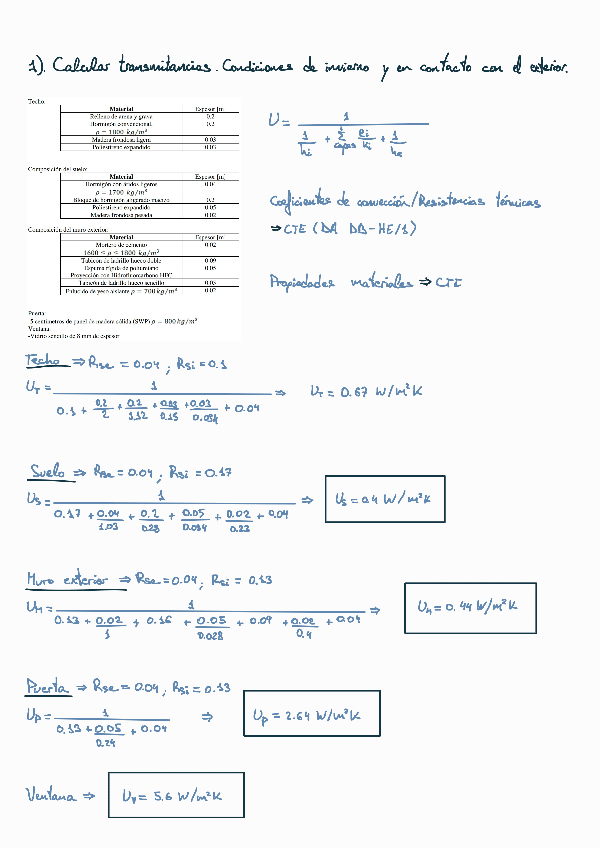 1). Calcular transmitancias. Condiciones de invierno y en contacto con el exterior.
Techo:
Material Espesor [m]
Relleno de arena y grava 0.2
Hormigón convencional. 0.2
ρ = 1800 kg/m³
Madera frondosa ligera 0.03
Poliestireno expandido 0.03
U = 1 / (1/hi + Σcapas ei/Ki + 1/he)
Composición del suelo:
Material Espesor [m]
Hormigón con áridos ligeros 0.04
ρ = 1700 kg/m³
Bloque de hormigón aligerado macizo 0.2
Poliestireno expandido 0.05
Madera frondosa pesada 0.02
Coeficientes de convección/Resistencias térmicas
⇒ CTE (DA DB-HE/1)
Composición del muro exterior:
Material Espesor [m]
Mortero de cemento 0.02
1600 ≤ ρ ≤ 1800 kg/m³
Tabicón de ladrillo hueco doble 0.09
Espuma rígida de poliuretano 0.05
Proyección con Hidrofluorcarbono HFC
Tabicón de ladrillo hueco sencillo 0.05
Enlucido de yeso aislante ρ = 700 kg/m³ 0.02
Propiedades materiales ⇒ CTE
Puerta:
5 centímetros de panel de madera sólida (SWP) ρ = 800 kg/m³
Ventana
-Vidrio sencillo de 8 mm de espesor
Techo ⇒ Rse = 0.04 ; Rsi = 0.1
UT = 1 / (0.1 + 0.2/2 + 0.2/1.12 + 0.03/0.15 + 0.03/0.034 + 0.04) ⇒ UT = 0.67 W/m²K
Suelo ⇒ Rse = 0.04 ; Rsi = 0.17
US = 1 / (0.17 + 0.04/1.03 + 0.2/0.28 + 0.05/0.034 + 0.02/0.23 + 0.04) ⇒ US = 0.4 W/m²K
Muro exterior ⇒ Rse = 0.04 ; Rsi = 0.13
UM = 1 / (0.13 + 0.02/1 + 0.16 + 0.05/0.028 + 0.09 + 0.02/0.4 + 0.04) ⇒ UM = 0.44 W/m²K
Puerta ⇒ Rse = 0.04 ; Rsi = 0.13
UP = 1 / (0.13 + 0.05/0.24 + 0.04) ⇒ UP = 2.64 W/m²K
Ventana ⇒ UV = 5.6 W/m²K